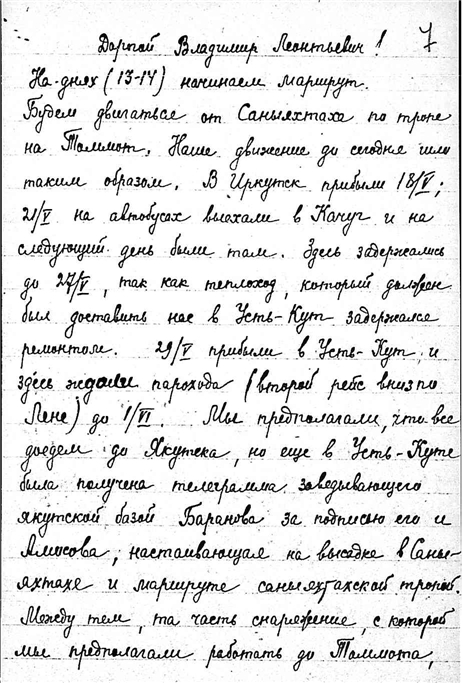 7
Дорогой Владимир Леонтьевич!
На-днях (13-14) начинаем маршрут.
Будем двигаться от Саныяхтаха по тропе
на Томмот. Наше движение до сегодня шло
таким образом. В Иркутск прибыли 18/V;
21/V на автобусах выехали в Качуг и на
следующий день были там. Здесь задержались
до 27/V, так как теплоход, который должен
был доставить нас в Усть-Кут задержался
ремонтом. 29/V прибыли в Усть-Кут и
здесь ждали парохода (второй рейс вниз по
Лене) до 1/VI. Мы предполагали, что все
доедем до Якутска, но еще в Усть-Куте
была получена телеграмма заведывающего
якутской базой Баранова за подписью его и
Амосова, настаивающая на высадке в Саны-
яхтахе и маршруте саныяхтахской тропой.
Между тем, та часть снаряжение, с которой
мы предполагали работать до Томмота,